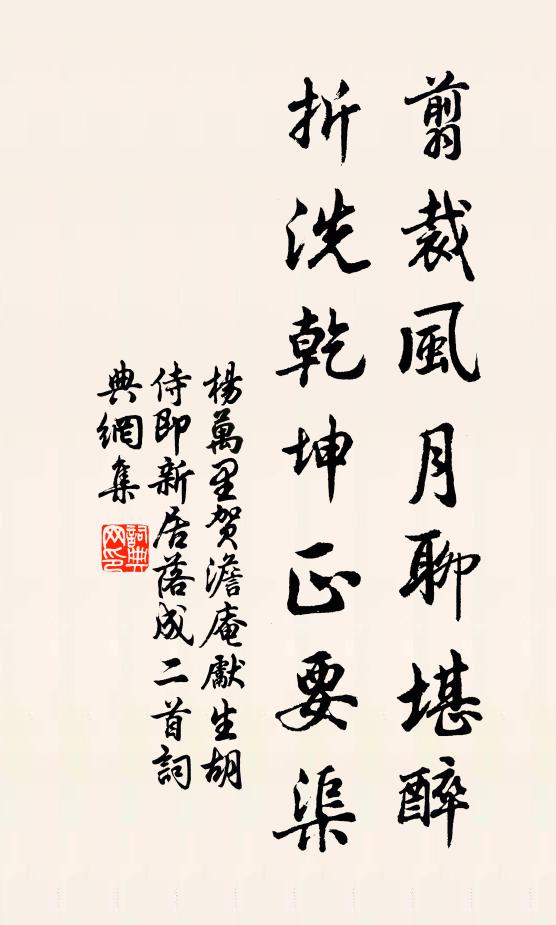 剪裁風月聊堪醉
折洗乾坤正要渠
楊萬里賀澹庵獻生胡
侍即新居落成二首詞
典網集
詞典
网印